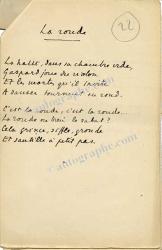 La ronde
22
Là haut, dans sa chambre vide,
Gaspard joue du violon
Et les morts qu'il invite
A danser tournent en rond.
C'est la ronde, c'est la ronde...
La ronde ou bien le sabat ?
Cela grince, siffle, gronde
Et sautille à petit pas.
© autographe.com